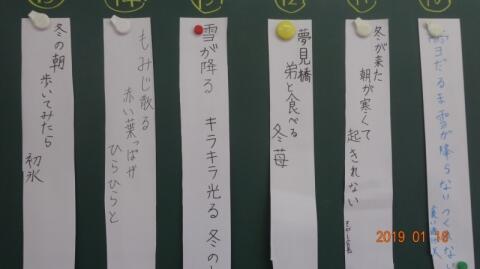 ⑩
雪だるま雪が降らないつくれない
⑪
冬が来た
朝が寒くて
起きれない
⑫
夢見橋
弟と食べる
冬苺
⑬
雪が降る キラキラ光る 冬の
⑭
もみじ散る
赤い葉っぱが
ひらひらと
⑮
冬の朝
歩いてみたら
初氷
2019 01 18